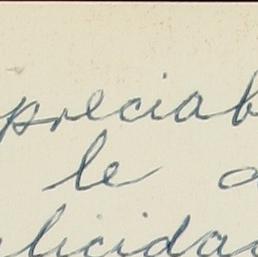 preciab
le a
licidad